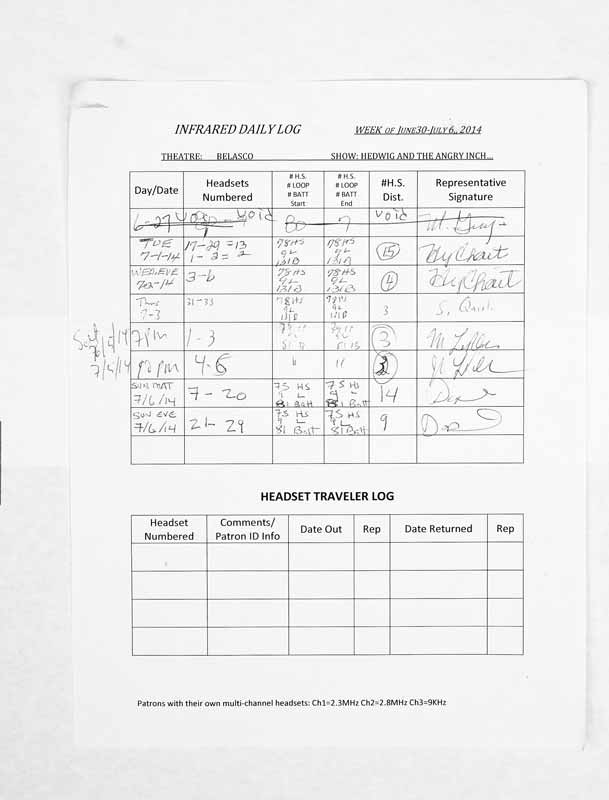 INFRARED DAILY LOG WEEK OF JUNE30-JULY 6, 2014
THEATRE: BELASCO SHOW: HEDWIG AND THE ANGRY INCH...
Day/Date Headsets Numbered # H.S. # LOOP # BATT Start # H.S. # LOOP # BATT End #H.S. Dist. Representative Signature
6-27 Void 80 7 void
TUE 7-1-14 17-29=13 1-2=2 78HS 9L 131B 78HS 9L 131B 15
WED EVE 7-2-14 3-6 78HS 9L 131B 78HS 9L 131B 4
Thus 7-3 31-33 78HS 9L 78HS 9L 3
7pm 1-3 3
pm 4-6 11 11 3
SUN MAT 7/6/14 7-20 75 HS 9 L 81 Batt 75 HS 9 L 81 Batt 14
SUN EVE 7/6/14 21-29 75 HS 9 L 81 Batt 75 HS 9 L 81 Batt 9
HEADSET TRAVELER LOG
Headset Numbered Comments/ Patron ID Info Date Out Rep Date Returned Rep
Patrons with their own multi-channel headsets: Ch1=2.3MHz Ch2=2.8MHz Ch3=9KHz